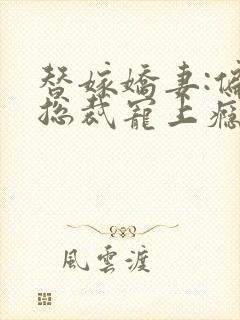 替嫁嬌妻:偏
總裁寵上癮
風雲渡